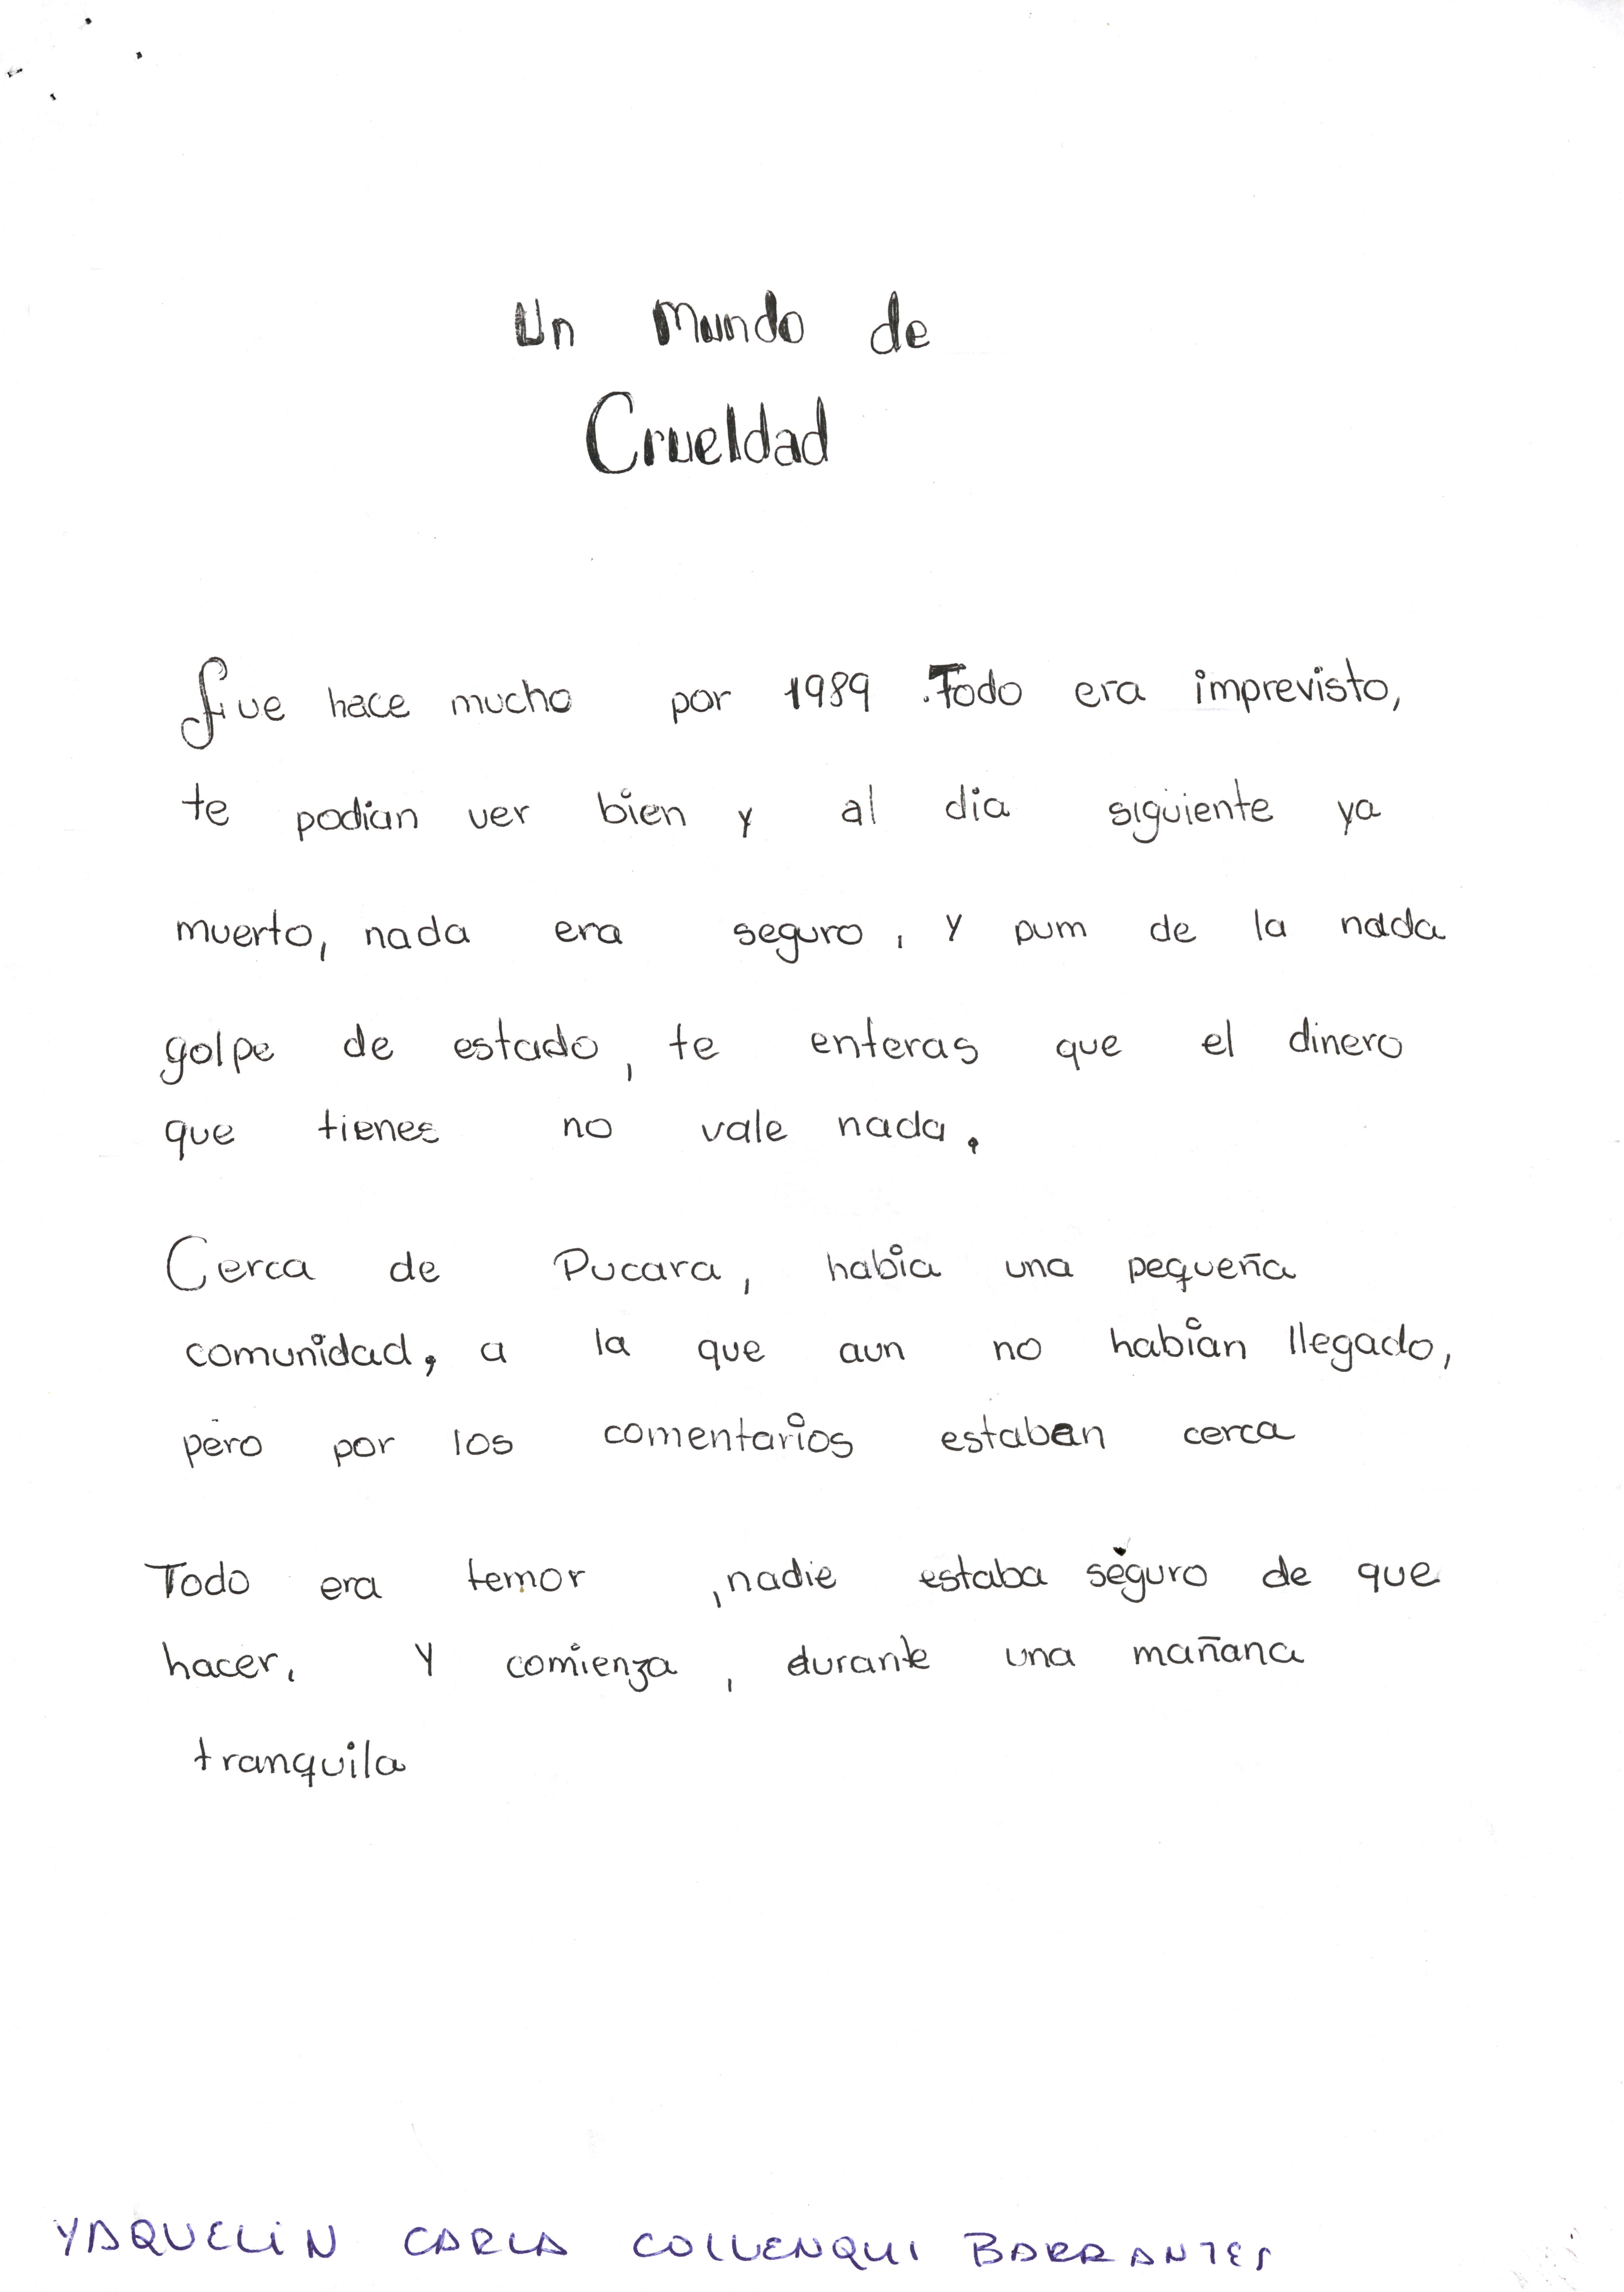 Un Mundo de
Crueldad
Fue hace mucho por 1989 .Todo era imprevisto,
te podian ver bien y al dia siguiente ya
muerto, nada era seguro, y pum de la nada
golpe de estado, te enteras que el dinero
que tienes no vale nada.
Cerca de Pucara, había una pequeña
comunidad, a la que aun no habían llegado,
pero por los comentarios estaban cerca
Todo era temor ,nadie estaba seguro de que
hacer, Y comienza, durante una mañana
tranquila
YAQUELIN CARLA COLLENQUI BARRANTES